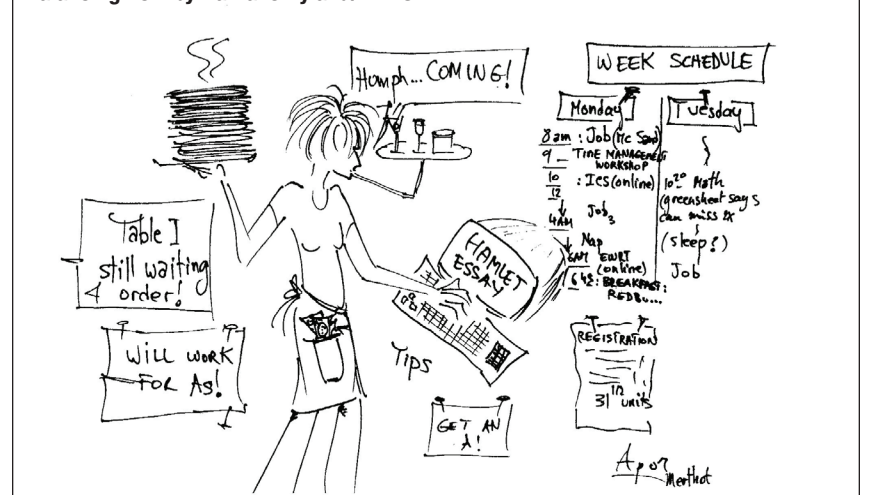 Humph... COMING!
WEEK SCHEDULE
Monday
8am : Job (Mc
9 - TIME MANAGEMENT
WORKSHOP
10 : Ics (online)
12
Job3
4AM
Nap
6AM EWRT
(online)
6 42 : BREAKFAST :
REDBU...
Tuesday
10 20 Math
(greensheet says
can miss 2x
(sleep?)
Job
Table I
still waiting
4 order!
HAMLET
ESSAY
WILL WORK
FOR As!
Tips
GET AN
A!
REGISTRATION
31 1/2 units